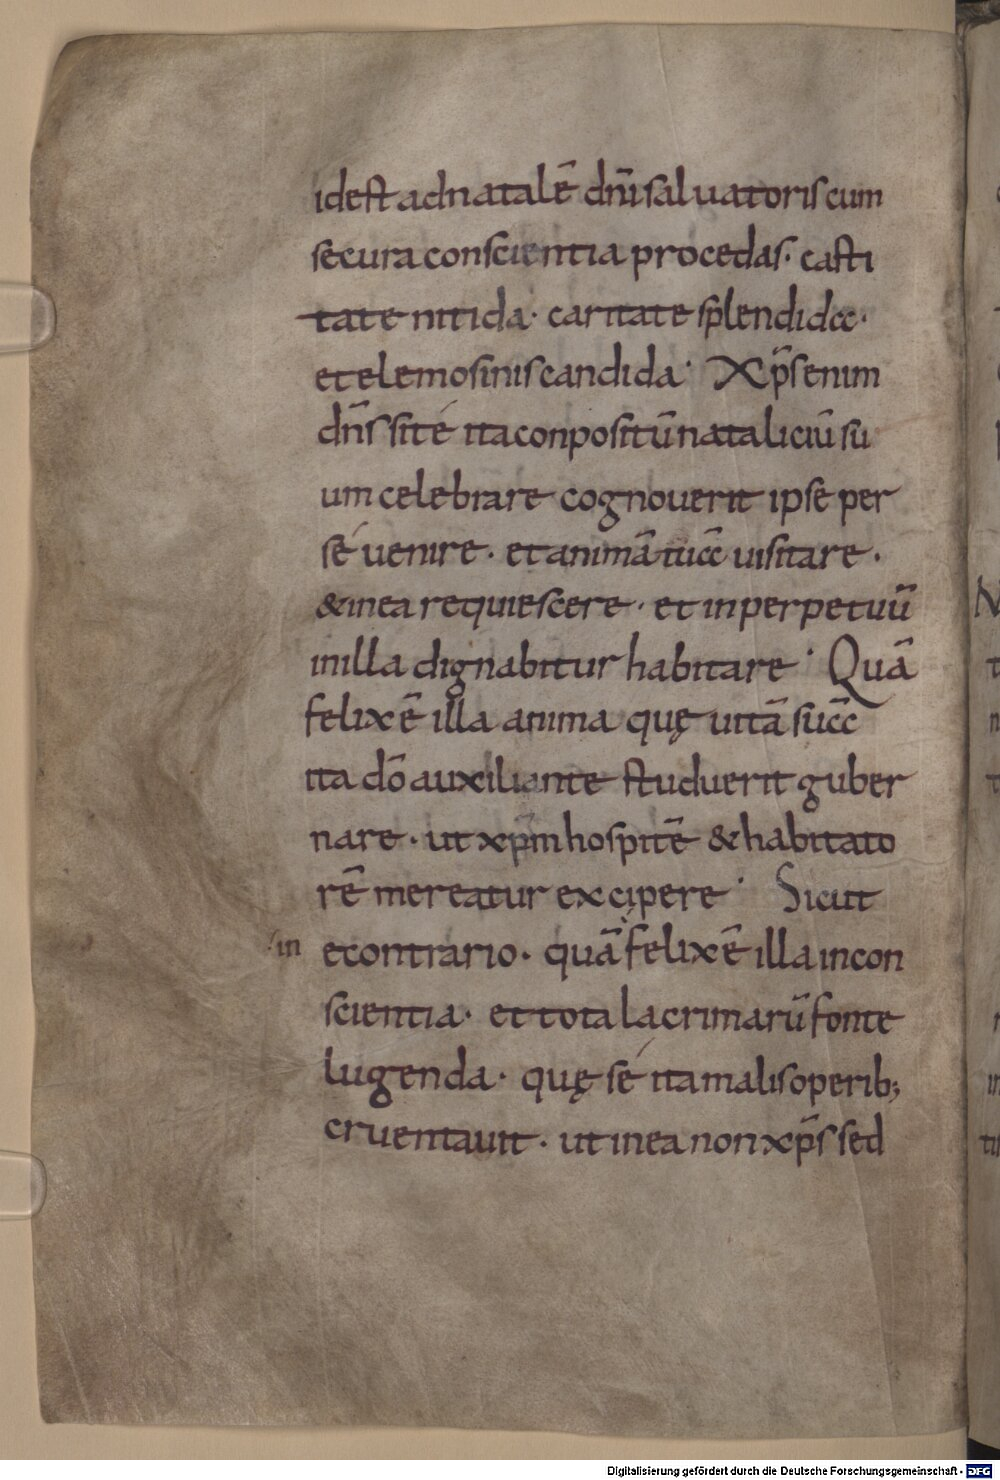 id est ad natalē dn̄i saluatoris cum
secura conscientia procedas· casti
tate nitida· caritate splendida·
et elemosinis candida· Xp̄s enim
dn̄s si té ita conpositū nataliciū su
um celebrare cognouerit ipse per
sé uenire· et animā tuā uisitare·
& in ea requiescere· et in perpetuū
in illa dignabitur habitare· Quā
felix ē illa anima quę uitā suā
ita dō auxiliante studuerit guber
nare· ut xp̄m hospitē & habitato
rē mereatur excipere· Sicut
in
e contrario· quā felix ē illa in con
scientia· et tota lacrimarū fonte
lugenda· quę sé ita malis operib;
cruentauit· ut in ea non xp̄s sed
Digitalisierung gefördert durch die Deutsche Forschungsgemeinschaft - DFG